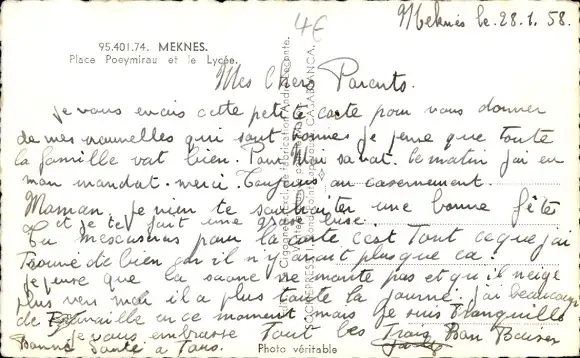 4€
Meknès le. 28.1.58.
95.401.74. MEKNES.
Place Poeymirau et le Lycée.
Mes Chers Parents.
Je vous envois cette petite carte pour vous donner
de mes nouvelles qui sont bonnes je pense que toute
la famille vat bien. Pour Moi sa vat. le matin j'ai eu
mon mandat. merci. Toujours au casernement.
Maman. je vien te souhaiter une bonne fête
et je te fait une grosse bise.
Tu mescuseras pour la carte c'est Tout ce que j'ai
Trouvé de bien car il n'y avait plus que ca!
je pense que la saone ne monte pas et qu'il neige
plus vers moi il a plus toute la journé. j'ai beaucoup
de Travaille en ce moment mais je suis Tranquille
je vous embrasse Tout les Trois Bon Baiser
Bonne Santé a Tous.
Photo véritable
CASABLANCA.